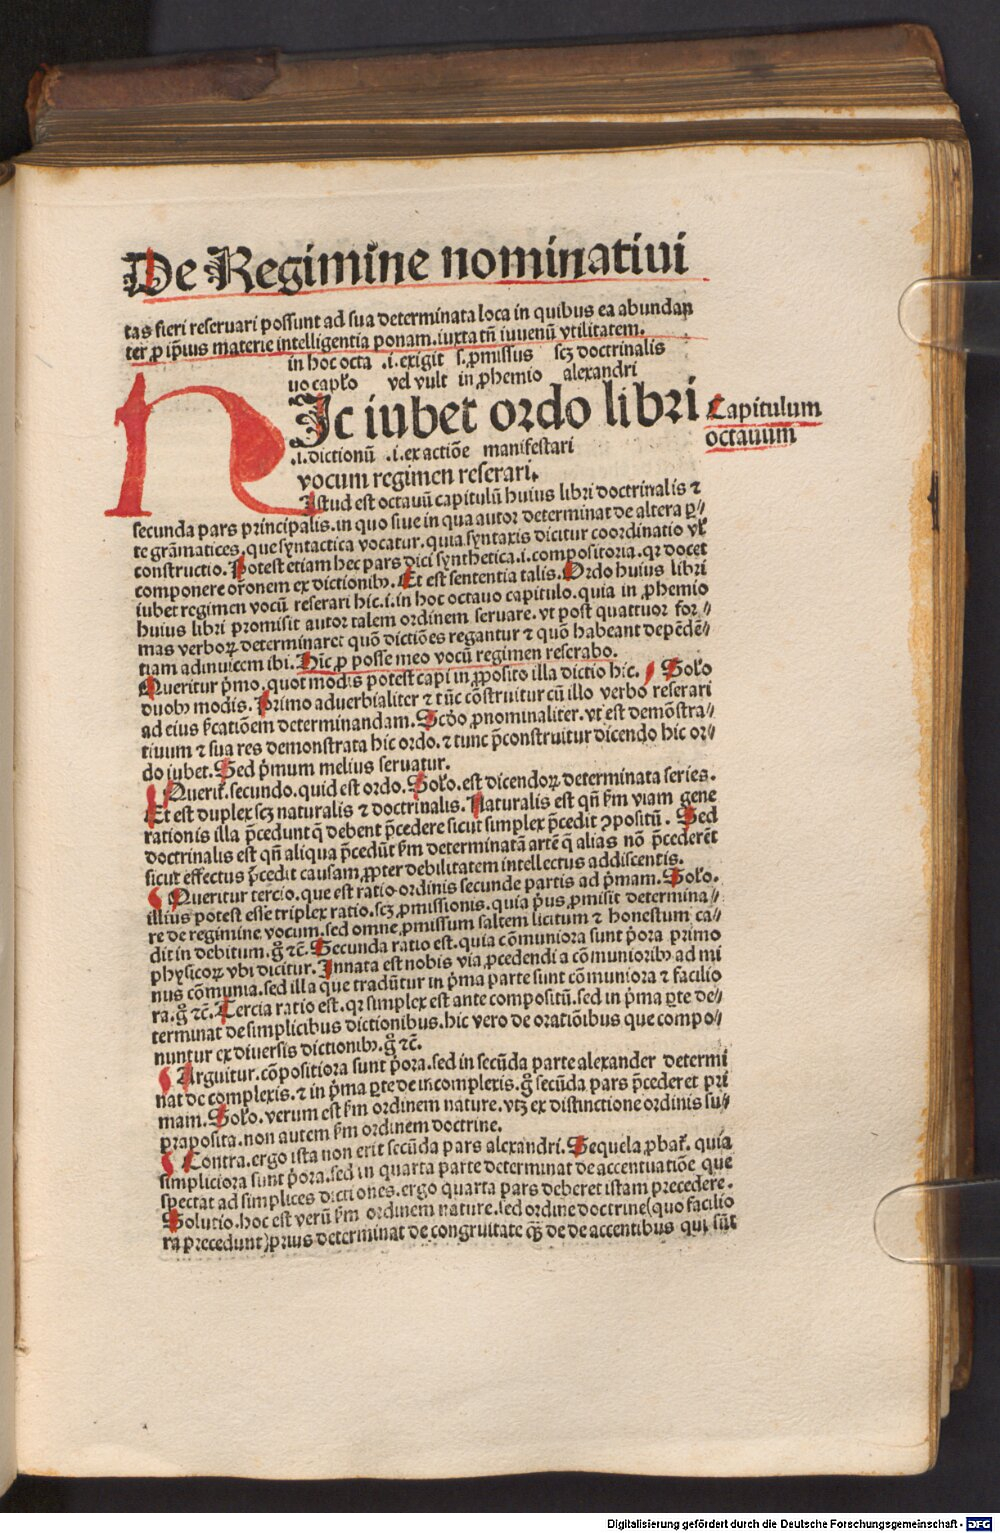 De Regimine nominatiui
tas fieri reseruari possunt ad sua determinata loca in quibus ea abundan
ter ꝓ ip̄ius materie intelligentia ponam. iuxta tn̄ iuuenū vtilitatem.
in hoc octa .i. exigit s. ꝓmissus scꝫ doctrinalis
uo capl̄o vel vult in ꝓhemio alexandri
Ic iubet ordo libri
Capitulum
octauum
.i. dictionū .i. ex actiōe manifestari
vocum regimen reserari.
Istud est octauū capitulū huius libri doctrinalis ⁊
secunda pars principalis. in quo siue in qua autor determinat de altera ꝑ⸗
te grāmatices. que syntactica vocatur. quia syntaxis dicitur coordinatio vl̓
constructio. Potest etiam hec pars dici synthetica .i. compositoria. qꝛ docet
componere or̄onem ex dictionibꝰ. Et est sententia talis. Ordo huius libri
iubet regimen vocū reserari hic .i. in hoc octauo capitulo. quia in ꝓhemio
huius libri promisit autor talem ordinem seruare. vt post quattuor for⸗
mas verboꝝ determinaret quō dictiōes regantur ⁊ quō habeant depēdē⸗
tiam adinuicem ibi. Hīc ꝓ posse meo vocū regimen reserabo.
Queritur p̄mo. quot modis potest capi in ꝓposito illa dictio hic. Solo
duobꝰ modis. Primo aduerbialiter ⁊ tūc cōstruitur cū illo verbo reserari
ad eius s̓catiōem determinandam. Scd̄o ꝓnominaliter. vt est demōstra⸗
tiuum ⁊ sua res demonstrata hic ordo. ⁊ tunc p̄construitur dicendo hic or⸗
do iubet. Sed p̄mum melius seruatur.
Querit̓. secundo. quid est ordo. Solo. est dicendoꝝ determinata series.
Et est duplex scꝫ naturalis ⁊ doctrinalis. Naturalis est qn̄ sm̄ viam gene
rationis illa p̄cedunt q̄ debent p̄cedere sicut simplex p̄cedit ꝯpositū. Sed
doctrinalis est qn̄ aliqua p̄cedūt sm̄ determinatā artē q̄ alias nō p̄cederēt
sicut effectus p̄cedit causam, ꝓpter debilitatem intellectus addiscentis.
Queritur tercio. que est ratio ordinis secunde partis ad p̄mam. Solo.
illius potest esse triplex ratio. scꝫ ꝓmissionis. quia p̄us ꝓmisit determina⸗
re de regimine vocum. sed omne ꝓmissum saltem licitum ⁊ honestum ca⸗
dit in debitum. g̊ ⁊c̄. Secunda ratio est. quia cōmuniora sunt p̄ora primo
physicoꝝ vbi dicitur. Innata est nobis via ꝓcedendi a cōmunioribꝰ ad mi
nus cōmunia. sed illa que tradūtur in p̄ma parte sunt cōmuniora ⁊ facilio
ra. g̊ ⁊c̄. Tercia ratio est. qꝛ simplex est ante compositū. sed in p̄ma ꝑte de⸗
terminat de simplicibus dictionibus. hic vero de oratiōibus que compo⸗
nuntur ex diuersis dictionibꝰ. g̊ ⁊c̄.
Arguitur. cōpositiora sunt p̄ora. sed in secūda parte alexander determi
nat de complexis. ⁊ in p̄ma ꝑte de incomplexis. g̊ secūda pars p̄cederet pri
mam. Solo. verum est sm̄ ordinem nature. vtꝫ ex distinctione ordinis su⸗
praposita. non autem sm̄ ordinem doctrine.
Contra. ergo ista non erit secūda pars alexandri. Sequela ꝓbat̓. quia
simpliciora sunt p̄ora. sed in quarta parte determinat de accentuatiōe que
spectat ad simplices dictiones. ergo quarta pars deberet istam precedere.
Solutio. hoc est verū sm̄ ordinem nature. sed ordine doctrine (quo facilio
ra precedunt) prius determinat de congruitate qꝫ̄ de de accentibus qui sūt
Digitalisierung gefördert durch die Deutsche Forschungsgemeinschaft - DFG